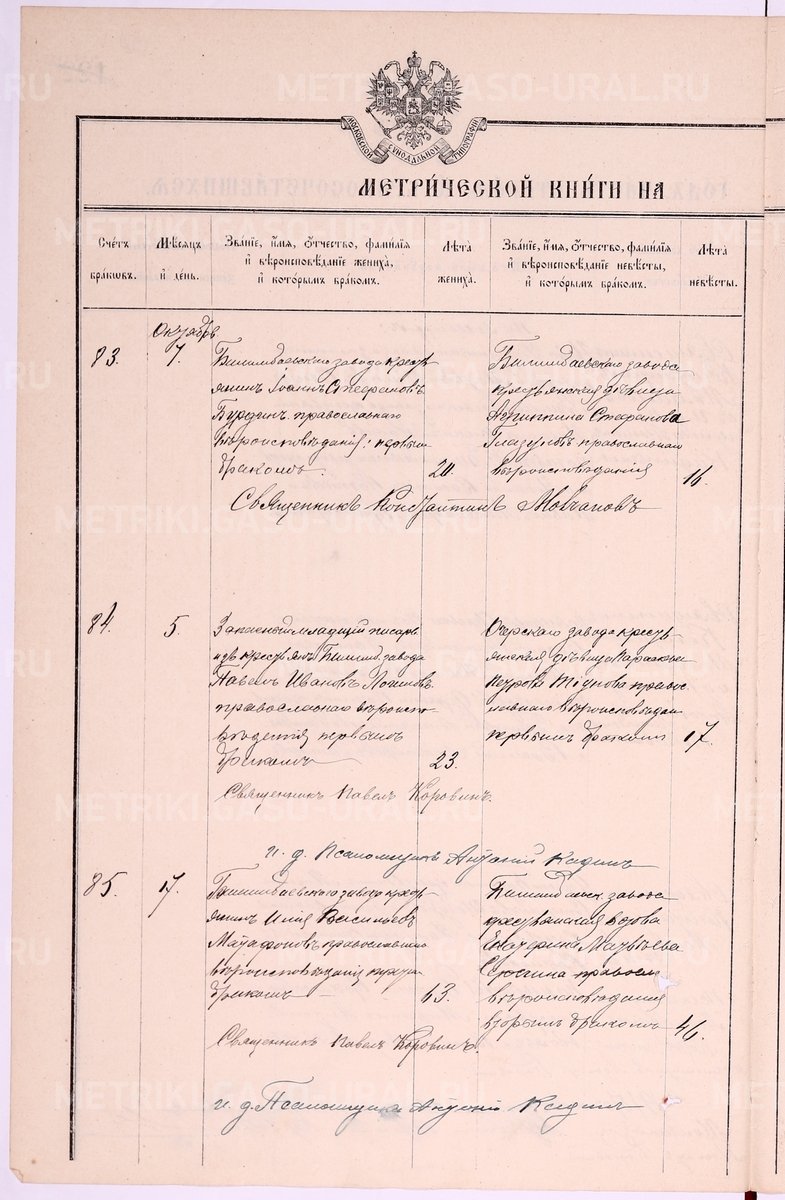 МОСКОВСКОЙ СѴНОДАЛЬНОЙ ТИПОГРАФІИ
МЕТРИ́ЧЕСКОЙ КНИ́ГИ НА
Сче́тъ бра́ковъ.
Мѣ́сяцъ и҆ де́нь.
Зва́нїе, и҆́мѧ, ѻ҆́тчество, фами́лїѧ
и҆ вѣроисповѣ́данїе жениха̀,
и҆ кото́рымъ бра́комъ.
Лѣ́та
жениха̀.
Зва́нїе, и҆́мѧ, ѻ҆́тчество, фами́лїѧ
и҆ вѣроисповѣ́данїе невѣ́сты,
и҆ кото́рымъ бра́комъ.
Лѣ́та
невѣ́сты.
Октябрь
83.
7.
Билимбаевскаго завода кресть
янинъ Іоаннъ Стефановъ
Бурдинъ православнаго
вѣроисповѣданія; первымъ
бракомъ.
20
Билимбаевскаго завода
крестьянская дѣвица
Агриппина Стефанова
Глазуновъ православнаго
вѣроисповѣданія
16.
Священникъ Константинъ Молчановъ
84.
5.
Запасной младшій писарь
изъ крестьянъ Билимб. завода
Павелъ Ивановъ Логиновъ
православнаго вѣроиспо
вѣданія первымъ
бракомъ
23.
Очерскаго завода кресть
янская дѣвица
Петрова правос
лавнаго вѣроисповѣдан
первымъ бракомъ
17.
Священникъ Павелъ Коровинъ.
и. д. Псаломщика Антоній Кадинъ
85.
17.
Билимбаевскаго завода кресть
янинъ Илія Васильевъ
православнаго
вѣроисповѣданія
бракомъ
63.
Билимбаевск. завода
крестьянская вдова
Екатерина Матвѣева
правосл
вѣроисповѣданія
вторымъ бракомъ
46.
Священникъ Павелъ Коровинъ.
и. д. Псаломщика Антоній Кадинъ
METRIKI.GASO-URAL.RU